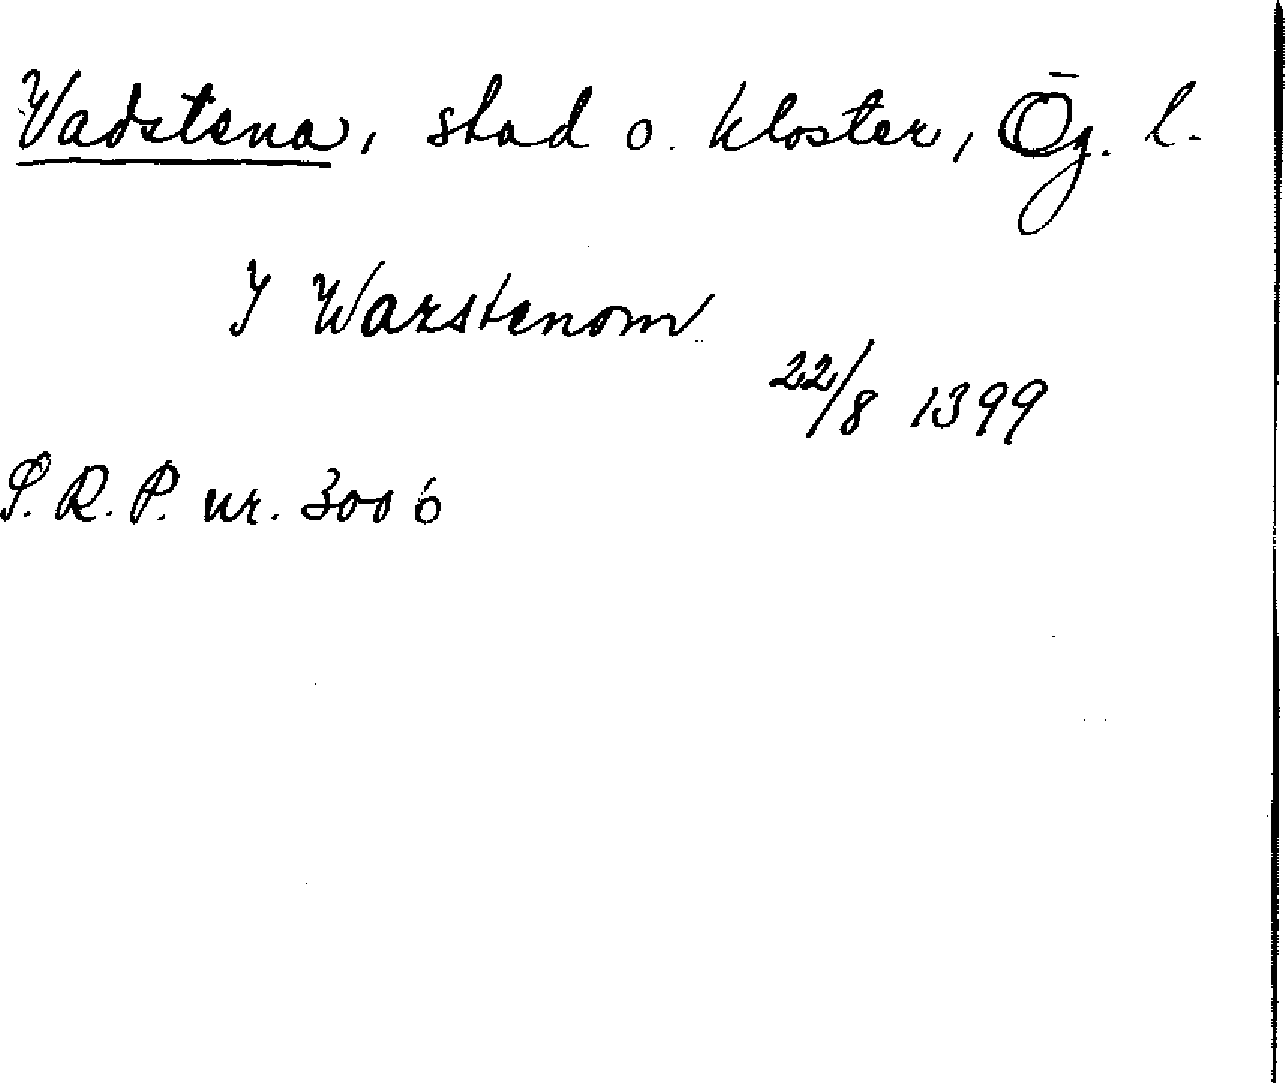 Vadstena, stad o. kloster, Ög. l.
I Warstenom
22/8 1399
S.R.P. nr. 3006